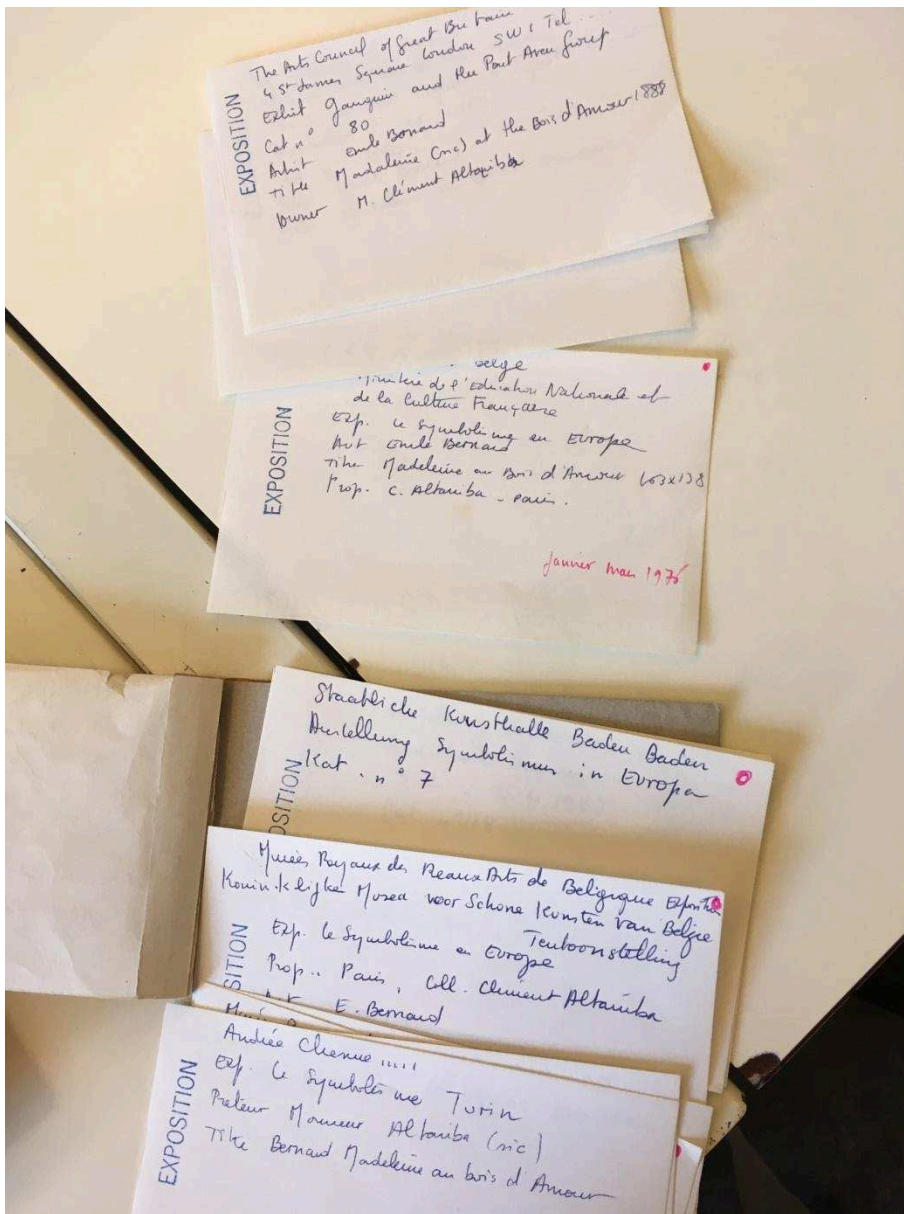 EXPOSITION
The Arts Council of Great Britain
4 St James Square London SW1 Tel ....
Exhibit Gauguin and the Pont Aven Group
Cat n° 80
Artist Emile Bernard
Title Madaleine (sic) at the Bois d'Amour 1888
Owner M. Clément Altariba
EXPOSITION
belge
Ministère de l'Education Nationale et
de la Culture Française
Exp. Le Symbolisme en Europe
Aut Emile Bernard
Titre Madeleine au Bois d'Amour 163x138
Prop. C. Altariba - Paris.
janvier mars 1976
SITION
Staatliche Kunsthalle Baden Baden
Austellung Symbolismus in Europa
Kat. n° 7
SITION
Musées Royaux des Beaux Arts de Belgique Exposition
Koninklijke Musea voor Schone Kunsten van Belgie
Tentoonstelling
Exp. Le Symbolisme en Europe
Prop.. Paris, Coll. Clément Altariba
E. Bernard
EXPOSITION
Andrée Chenue .....
Exp. Le Symbolisme Turin
Preteur Monsieur Altariba (sic)
Titre Bernard Madeleine au bois d'Amour